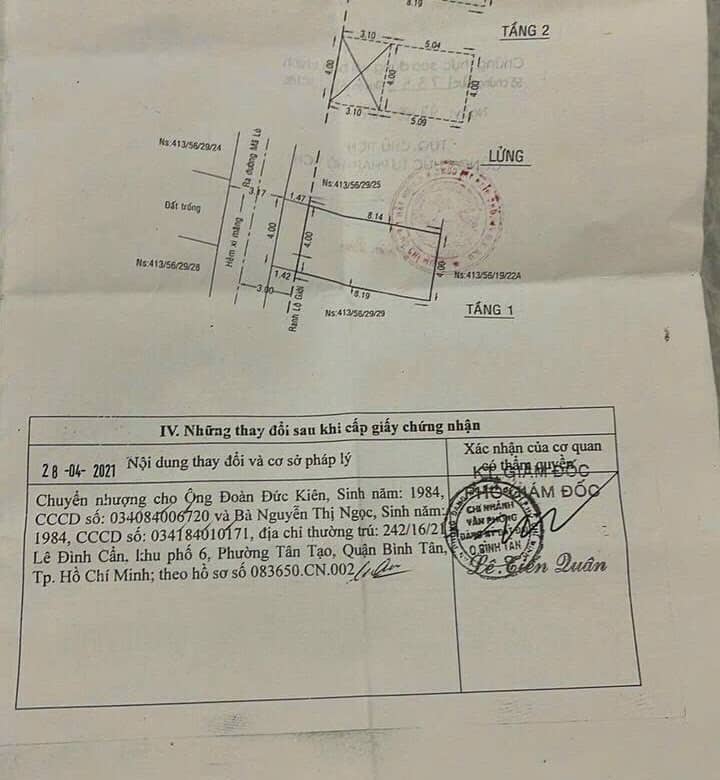 8.19
TẦNG 2
3.10
5.04
4.00
4.00
4.00
3.10
5.09
LỬNG
Ns:413/56/29/24
Ra đường Mã Lò
Ns:413/56/29/25
3.17
1.47
8.14
Đất trống
4.00
4.00
4.00
Hẻm xi măng
Ns:413/56/29/28
1.42
Ns:413/56/19/22A
3.00
8.19
Ranh Lộ Giới
Ns:413/56/29/29
TẦNG 1
IV. Những thay đổi sau khi cấp giấy chứng nhận
28 -04- 2021 Nội dung thay đổi và cơ sở pháp lý
Xác nhận của cơ quan
có thẩm quyền
KT. GIÁM ĐỐC
PHÓ GIÁM ĐỐC
Chuyển nhượng cho Ông Đoàn Đức Kiên, Sinh năm: 1984,
CCCD số: 034084006720 và Bà Nguyễn Thị Ngọc, Sinh năm:
1984, CCCD số: 034184010171, địa chỉ thường trú: 242/16/21
Lê Đình Cẩn, khu phố 6, Phường Tân Tạo, Quận Bình Tân,
Tp. Hồ Chí Minh; theo hồ sơ số 083650.CN.002
CHI NHÁNH
VĂN PHÒNG
ĐĂNG KÝ ĐẤT ĐAI
Q.BÌNH TÂN
Lê Tiến Quân